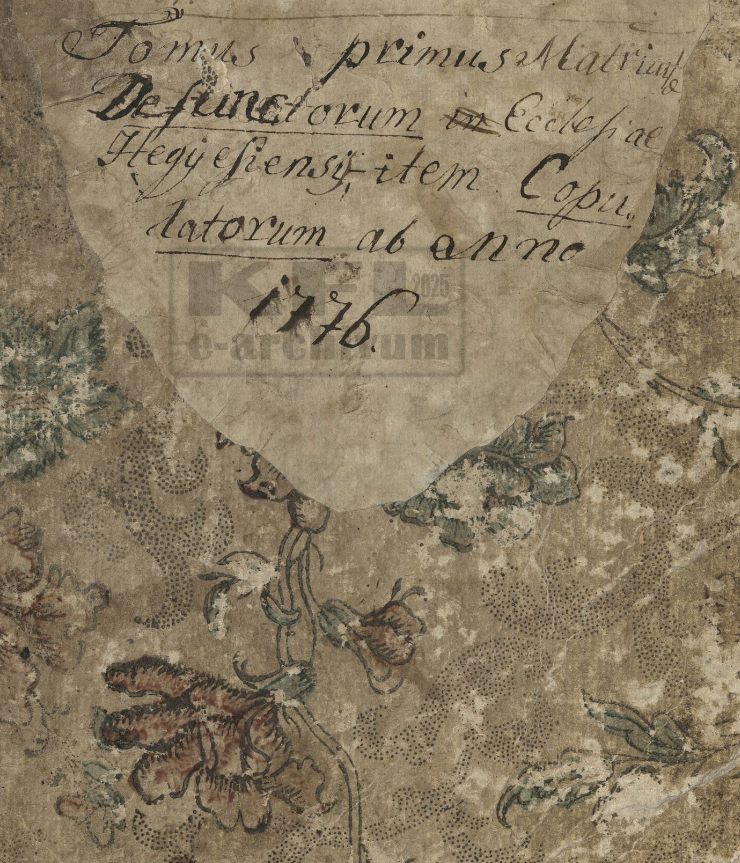 Tomus primus Matriculæ
Defunctorum in Ecclesiae
Hegyesiensij, item Copu„
latorum ab Anno
1776.
KFL 2025
e-archívum